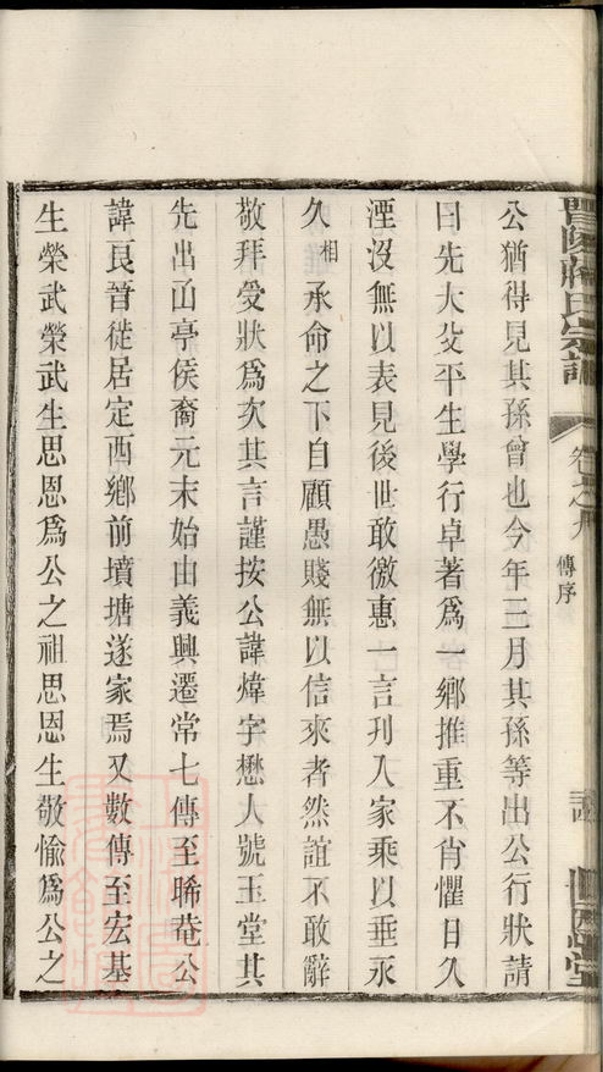 晉陵蔣氏宗譜
卷之九
傳序
公猶得見其孫曾也今年三月其孫等出公行狀請
曰先大父平生學行卓著爲一鄉推重不肖懼日久
湮沒無以表見後世敢徼惠一言刋入家乘以垂永
久相承命之下自顧愚賤無以信來者然誼不敢辭
敬拜受狀爲次其言謹按公諱煒字懋人號玉堂其
先出㓜亭侯裔元末始由義興遷常七傳至晞菴公
諱良晉徙居定西鄉前墳塘遂家焉又數傳至宏基
生榮武榮武生思恩爲公之祖思恩生敬愉爲公之